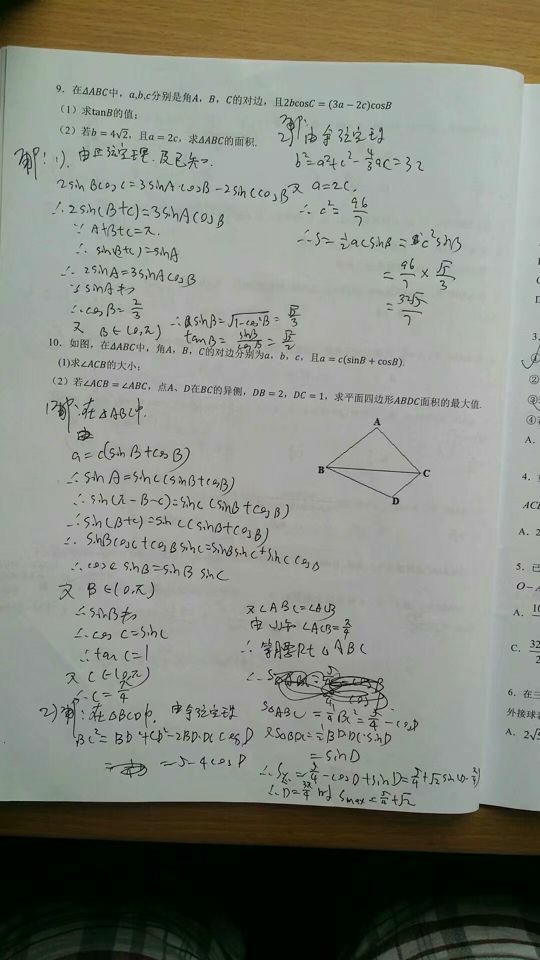 9. 在ΔABC中，a,b,c分别是角A，B，C的对边，且2bcosC = (3a − 2c)cosB
（1）求tanB的值；
（2）若b = 4√2，且a = 2c，求ΔABC的面积.
解：1). 由正弦定理及已知
2sinBcosC=3sinA·cosB-2sinCcosB
∴2sin(B+C)=3sinAcosB
∵A+B+C=π
∴sin(B+C)=sinA
∴2sinA=3sinAcosB
∵sinA≠0
∴cosB=2/3
又 B∈(0,π) ∴sinB=√(1-cos²B)=√5/3
tanB=sinB/cosB=√5/2
解：
2) 由余弦定理
b²=a²+c²-4/3ac=32
又 a=2c,
∴c²=96/7
∴S=1/2acsinB=c²sinB
=96/7×√5/3
=32√5/7
10. 如图，在ΔABC中，角A，B，C的对边分别为a，b，c，且a = c(sinB + cosB).
(1)求∠ACB的大小；
（2）若∠ACB = ∠ABC，点A、D在BC的异侧，DB = 2，DC = 1，求平面四边形ABDC面积的最大值.
A
B
C
D
1)解：在△ABC中.
由
a=c(sinB+cosB)
∴sinA=sinC(sinB+cosB)
∴sin(π-B-C)=sinC(sinB+cosB)
∴sin(B+C)=sinC(sinB+cosB)
∴sinBcosC+cosBsinC=sinBsinC+sinCcosB
∴cosCsinB=sinBsinC
又 B∈(0,π)
∴sinB≠0
∴cosC=sinC
∴tanC=1
又C∈(0,π)
∴C=π/4
2)解：在△BCD中，由余弦定理
BC²=BD²+CD²-2BD·DC·cosD
=5-4cosD
又∠ABC=∠ACB
由(1)知∠ACB=π/4
∴等腰Rt△ABC
S△ABC=1/4BC²=5/4-cosD
又S△BDC=1/2BD·DC·sinD
=sinD
=5/4-cosD+sinD=5/4+√2sin(D-π/4)
∴D=3π/4时Smax=5/4+√2
3.
②
③
④
A.
4.
ACE
A. 2
5. 已
O−A
A. 16
C. 32
6. 在三
外接球
A. 2√3